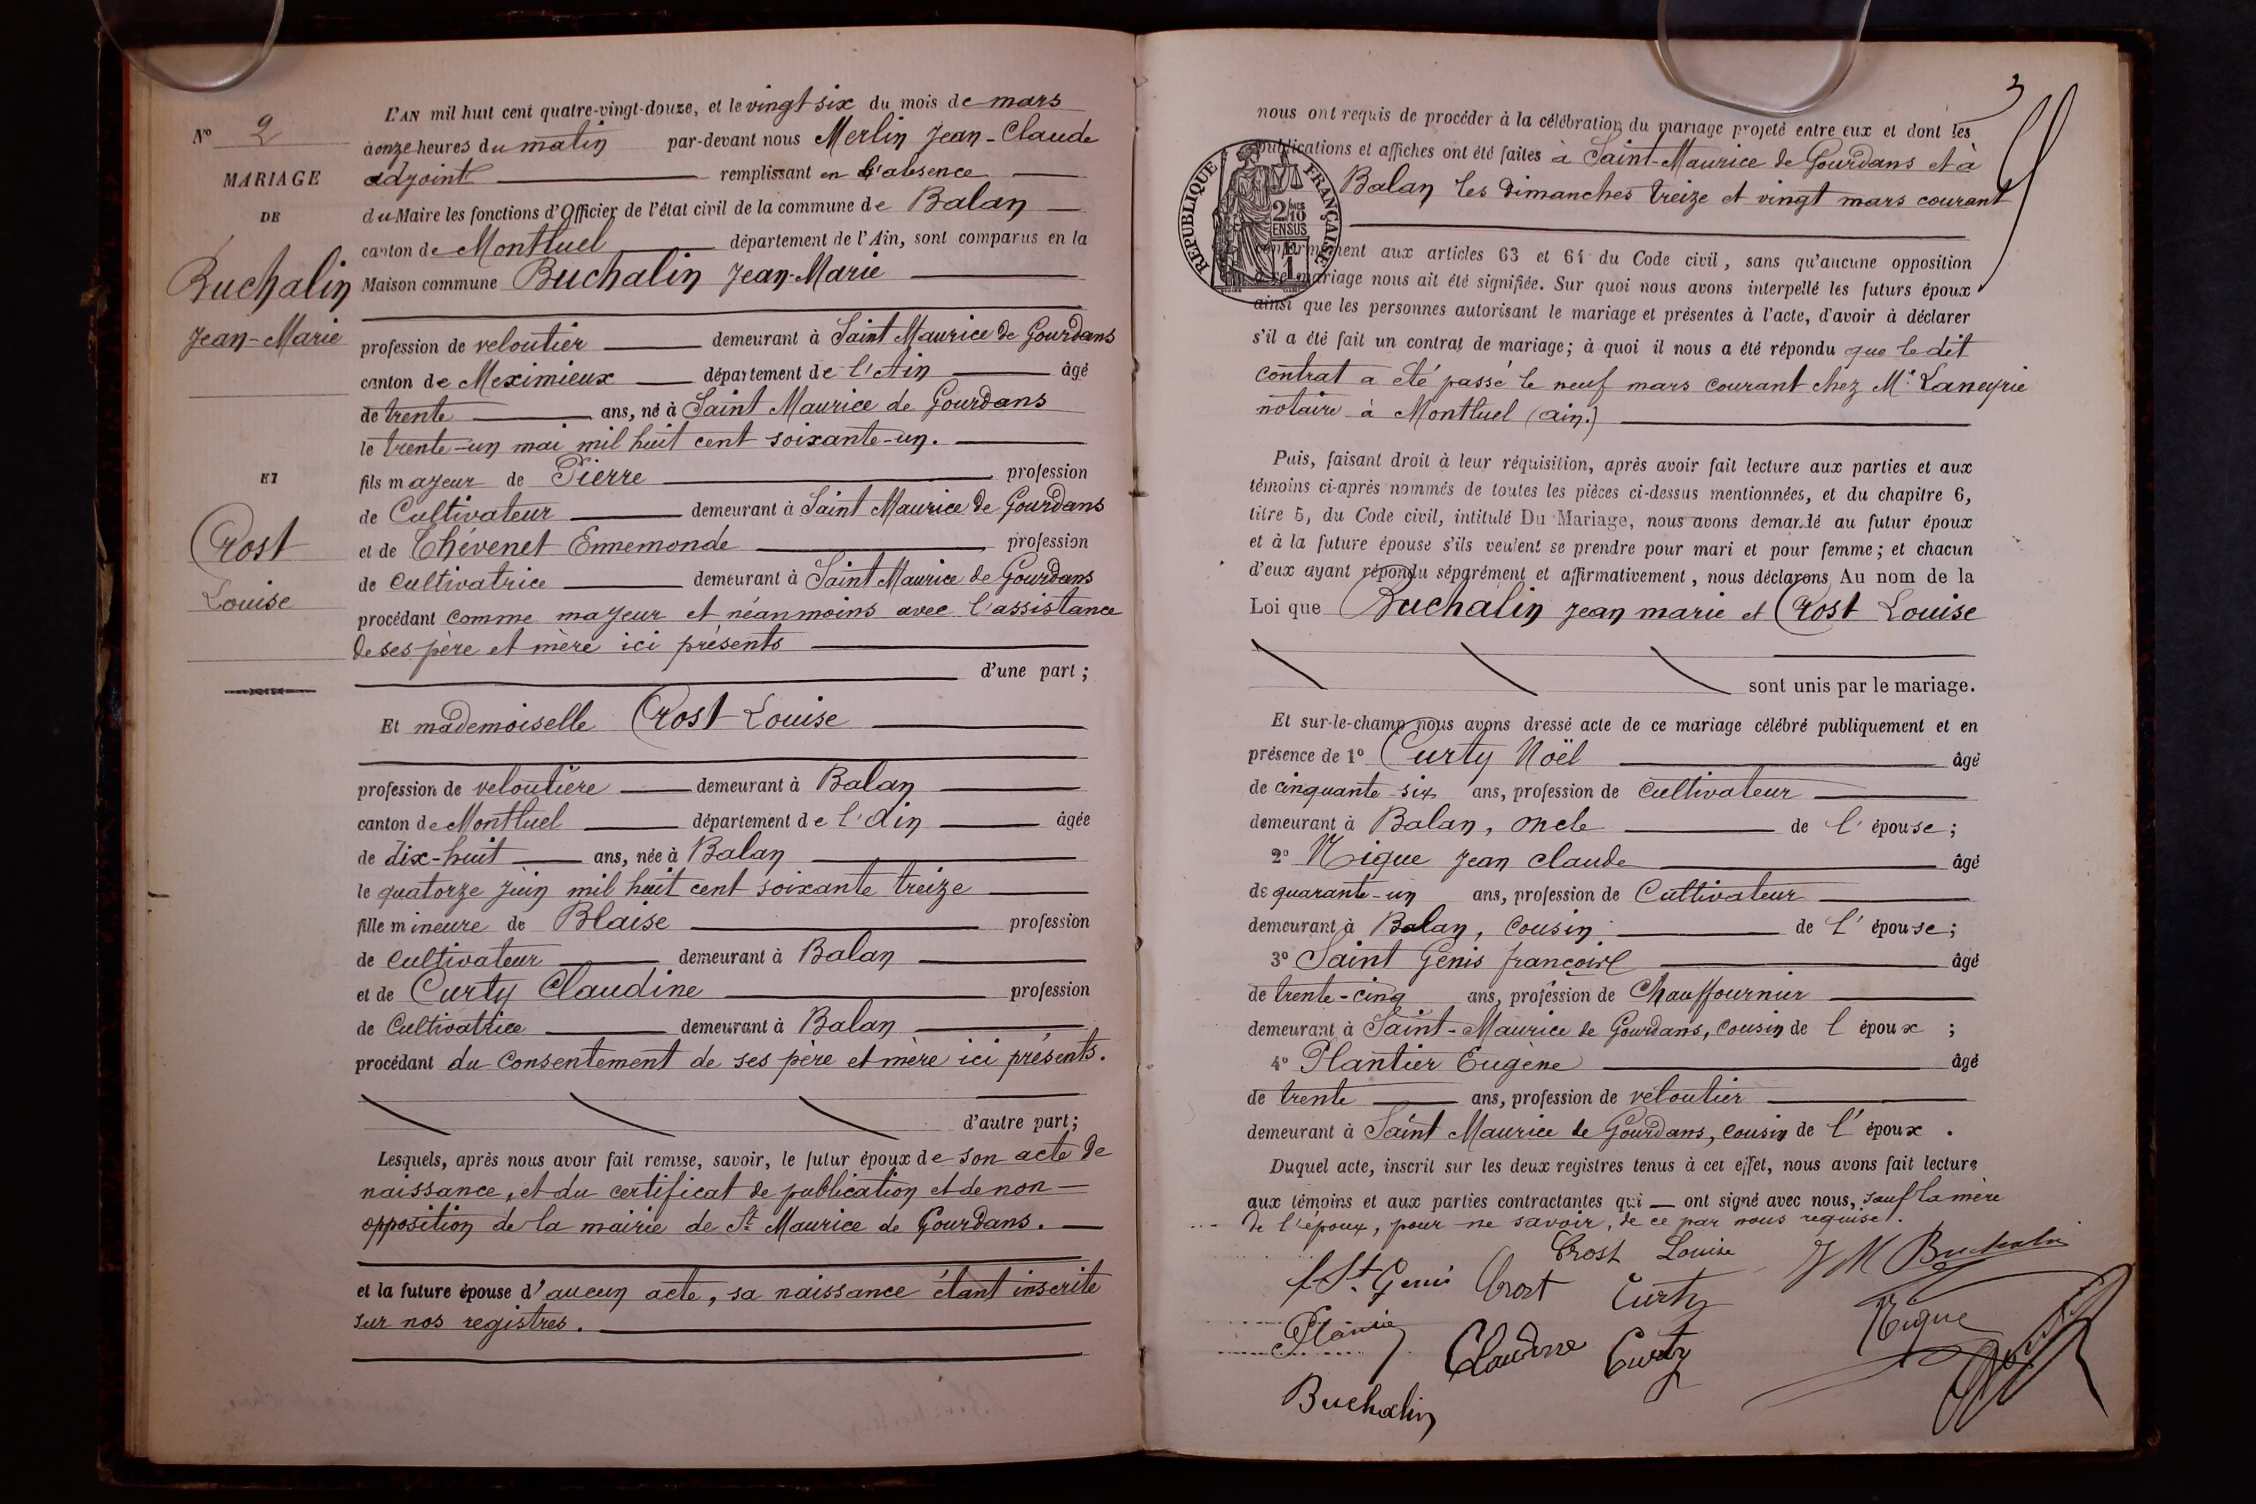 L'AN mil huit cent quatre-vingt-douze, et le vingt six du mois de mars
à onze heures du matin par-devant nous Merlin Jean-Claude
adjoint remplissant en l'absence
du Maire les fonctions d'Officier de l'état civil de la commune de Balan
canton de Montluel département de l'Ain, sont comparus en la
Maison commune Buchalin Jean-Marie
profession de veloutier demeurant à Saint Maurice de Gourdans
canton de Meximieux département de l'Ain âgé
de trente ans, né à Saint Maurice de Gourdans
le trente-un mai mil huit cent soixante-un.
fils majeur de Pierre profession
de Cultivateur demeurant à Saint Maurice de Gourdans
et de Thévenet Ennemonde profession
de cultivatrice demeurant à Saint Maurice de Gourdans
procédant comme majeur et néanmoins avec l'assistance
de ses père et mère ici présents
d'une part ;
Et mademoiselle Crost Louise
profession de veloutière demeurant à Balan
canton de Montluel département de l'Ain âgée
de dix-huit ans, née à Balan
le quatorze juin mil huit cent soixante treize
fille mineure de Blaise profession
de cultivateur demeurant à Balan
et de Curty Claudine profession
de Cultivatrice demeurant à Balan
procédant du consentement de ses père et mère ici présents.
d'autre part ;
Lesquels, après nous avoir fait remise, savoir, le futur époux de son acte de
naissance, et du certificat de publication et de non-
opposition de la mairie de St Maurice de Gourdans.
et la future épouse d'aucun acte, sa naissance étant inscrite
sur nos registres.
No 2
MARIAGE
DE
Buchalin
Jean-Marie
ET
Crost
Louise
3
nous ont requis de procéder à la célébration du mariage projeté entre eux et dont les
publications et affiches ont été faites à Saint-Maurice de Gourdans et à
Balan les dimanches treize et vingt mars courant
conformément aux articles 63 et 64 du Code civil, sans qu'aucune opposition
à ce mariage nous ait été signifiée. Sur quoi nous avons interpellé les futurs époux
ainsi que les personnes autorisant le mariage et présentes à l'acte, d'avoir à déclarer
s'il a été fait un contrat de mariage ; à quoi il nous a été répondu que le dit
contrat a été passé le neuf mars courant chez Me Laneyrie
notaire à Montluel (ain.)
RÉPUBLIQUE FRANÇAISE
2/10
EN SUS
1
Puis, faisant droit à leur réquisition, après avoir fait lecture aux parties et aux
témoins ci-après nommés de toutes les pièces ci-dessus mentionnées, et du chapitre 6,
titre 5, du Code civil, intitulé Du Mariage, nous avons demandé au futur époux
et à la future épouse s'ils veulent se prendre pour mari et pour femme ; et chacun
d'eux ayant répondu séparément et affirmativement, nous déclarons Au nom de la
Loi que Buchalin Jean marie et Crost Louise
sont unis par le mariage.
Et sur-le-champ nous avons dressé acte de ce mariage célébré publiquement et en
présence de 1o Curty Noël âgé
de cinquante-six ans, profession de cultivateur
demeurant à Balan, oncle de l'épouse ;
2o Nigue Jean Claude âgé
de quarante-un ans, profession de Cultivateur
demeurant à Balan, cousin de l'épouse ;
3o Saint Genis françois âgé
de trente-cinq ans, profession de Chauffournier
demeurant à Saint-Maurice de Gourdans, cousin de l époux ;
4o Plantier Eugène âgé
de trente ans, profession de veloutier
demeurant à Saint Maurice de Gourdans, cousin de l'époux .
Duquel acte, inscrit sur les deux registres tenus à cet effet, nous avons fait lecture
aux témoins et aux parties contractantes qui ont signé avec nous, sauf la mère
de l'époux, pour ne savoir, de ce par nous requise.
Crost Louise J M Buchalin
f St. Genis Crost Curty
Nigue
Claudine Curty
Buchalin